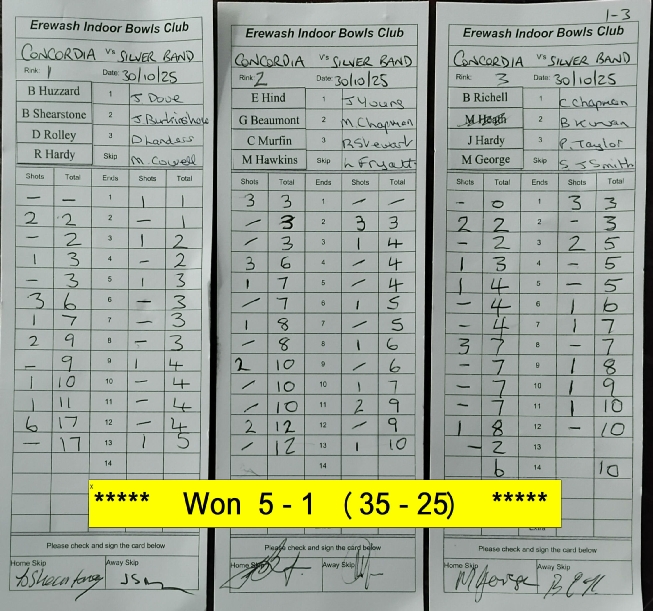 1-3
Erewash Indoor Bowls Club
CONCORDIA Vs SILVER BAND
Rink: 1 Date: 30/10/25
B Huzzard 1 J Dove
B Shearstone 2
D Rolley 3 D Landers
R Hardy Skip M. Cowell
Shots Total Ends Shots Total
- - 1 1 1
2 2 2 - 1
- 2 3 1 2
1 3 4 - 2
- 3 5 1 3
3 6 6 - 3
1 7 7 - 3
2 9 8 - 3
- 9 9 1 4
1 10 10 - 4
1 11 11 - 4
6 17 12 - 4
- 17 13 1 5
14
Please check and sign the card below
Home Skip Away Skip
Erewash Indoor Bowls Club
CONCORDIA Vs SILVER BAND
Rink: 2 Date: 30/10/25
E Hind 1 J Young
G Beaumont 2 M. Chapman
C Murfin 3 R Stewart
M Hawkins Skip L Fryatt
Shots Total Ends Shots Total
3 3 1 - -
- 3 2 3 3
- 3 3 1 4
3 6 4 - 4
1 7 5 - 4
- 7 6 1 5
1 8 7 - 5
- 8 8 1 6
2 10 9 - 6
- 10 10 1 7
- 10 11 2 9
2 12 12 - 9
- 12 13 1 10
14
Please check and sign the card below
Home Skip Away Skip
Erewash Indoor Bowls Club
CONCORDIA Vs SILVER BAND
Rink: 3 Date: 30/10/25
B Richell 1 C Chapman
M Heath 2 B Kirwan
J Hardy 3 P. Taylor
M George Skip S J Smith
Shots Total Ends Shots Total
- 0 1 3 3
2 2 2 - 3
- 2 3 2 5
1 3 4 - 5
1 4 5 - 5
- 4 6 1 6
- 4 7 1 7
3 7 8 - 7
- 7 9 1 8
- 7 10 1 9
- 7 11 1 10
1 8 12 - 10
- 2 13
6 14 10
Please check and sign the card below
Home Skip Away Skip
M George
***** Won 5 - 1 ( 35 - 25) *****